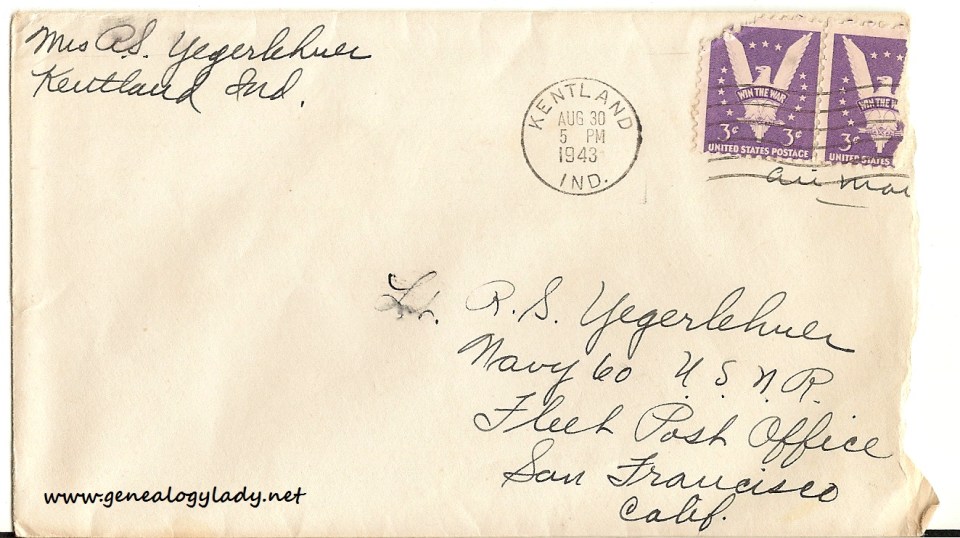 Mrs R.S. Yegerlehner
Kentland Ind.
KENTLAND
AUG 30
5 PM
1943
IND.
WIN THE WAR
3¢ 3¢
UNITED STATES POSTAGE
WIN THE W
3¢
UNITED STATES
air mai
Lt. R. S. Yegerlehner
Navy 60 U.S.N.R.
Fleet Post Office
San Francisco
Calif.
www.genealogylady.net